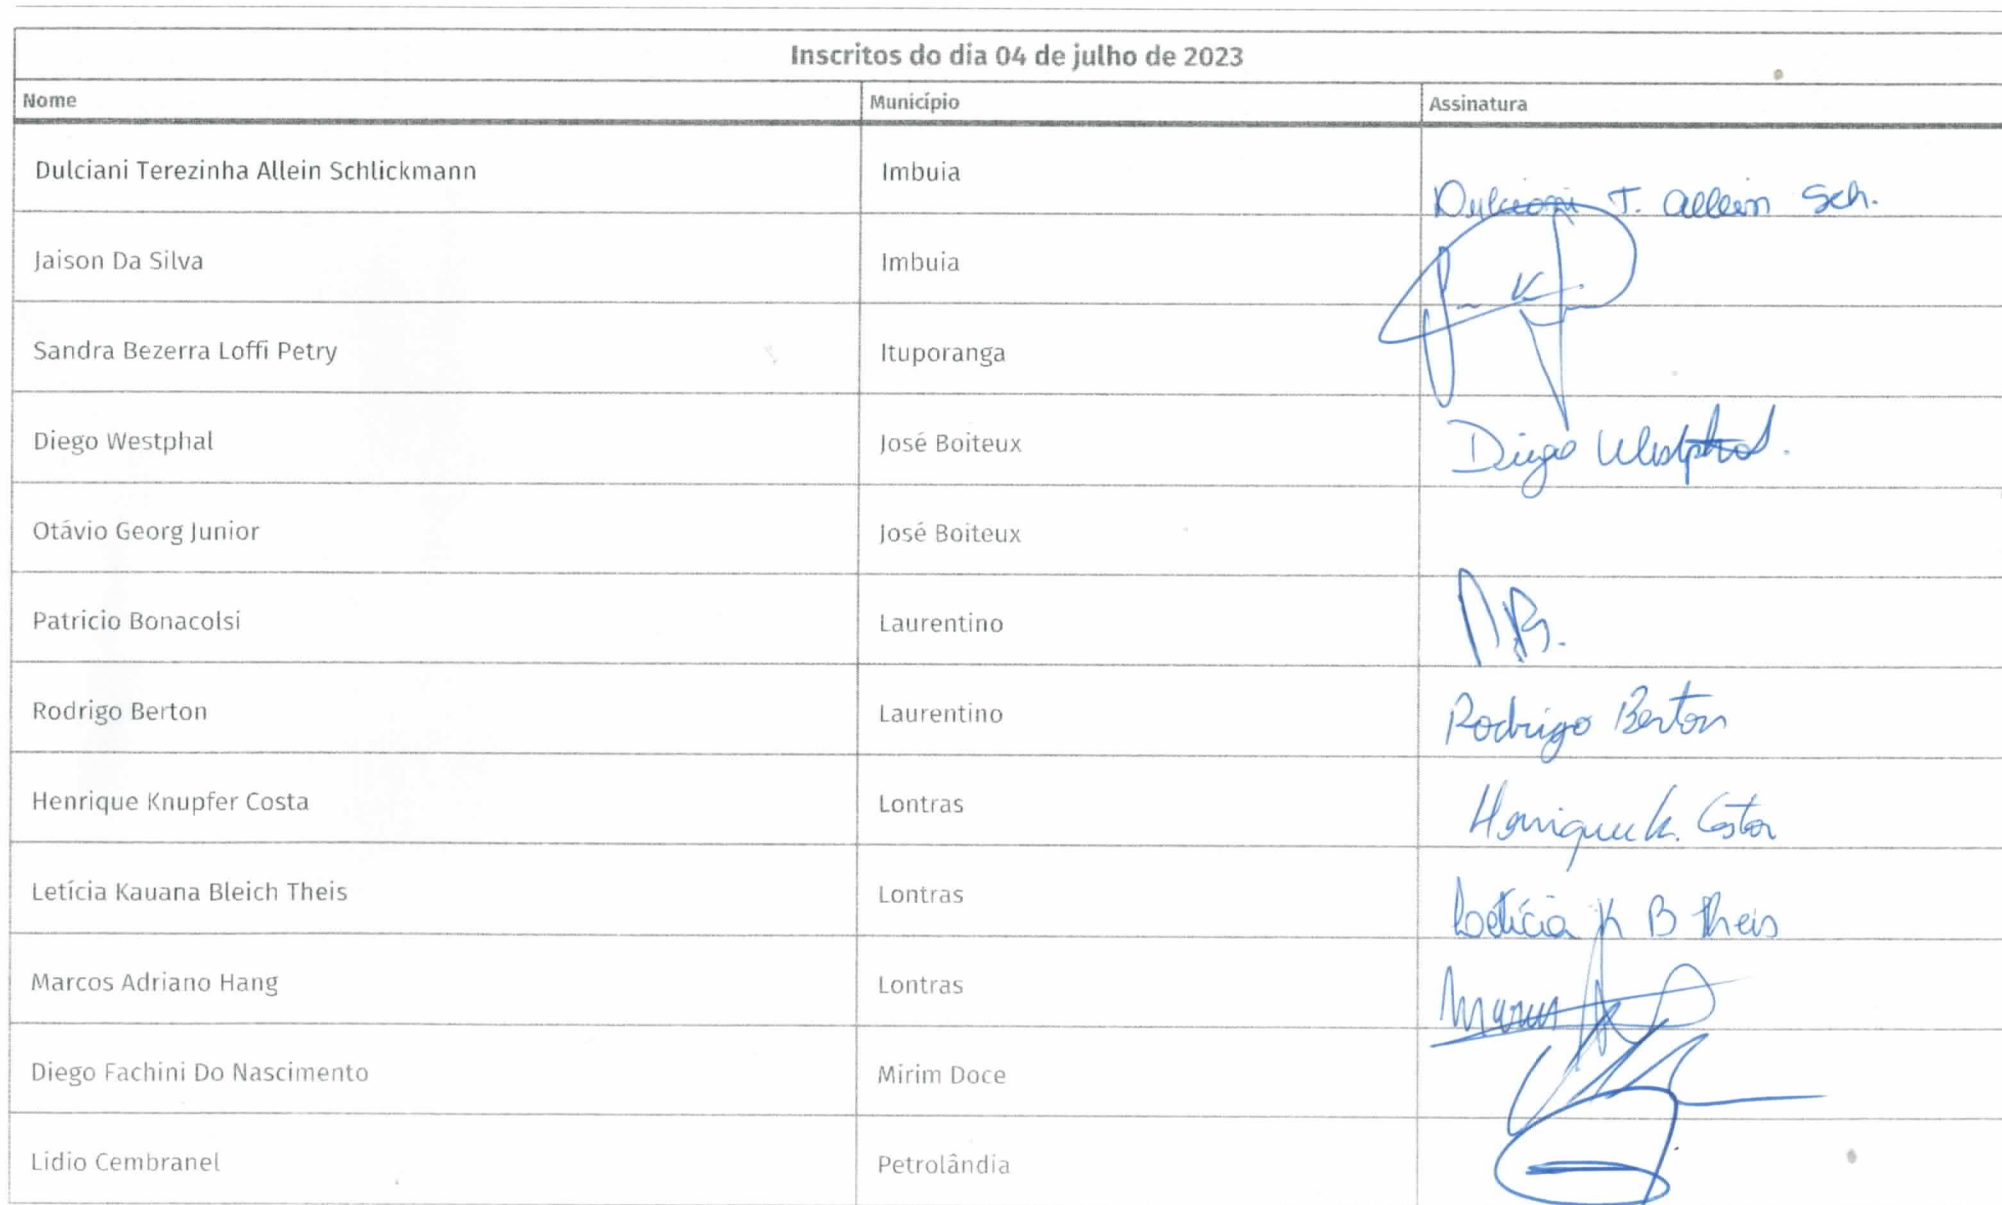 Inscritos do dia 04 de julho de 2023
Nome Município Assinatura
Dulciani Terezinha Allein Schlickmann Imbuia Dulciani T. Allein Sch.
Jaison Da Silva Imbuia
Sandra Bezerra Loffi Petry Ituporanga
Diego Westphal José Boiteux Diego Westphal.
Otávio Georg Junior José Boiteux
Patricio Bonacolsi Laurentino PB.
Rodrigo Berton Laurentino Rodrigo Berton
Henrique Knupfer Costa Lontras Henrique K. Costa
Letícia Kauana Bleich Theis Lontras Letícia K B Theis
Marcos Adriano Hang Lontras
Diego Fachini Do Nascimento Mirim Doce
Lidio Cembranel Petrolândia